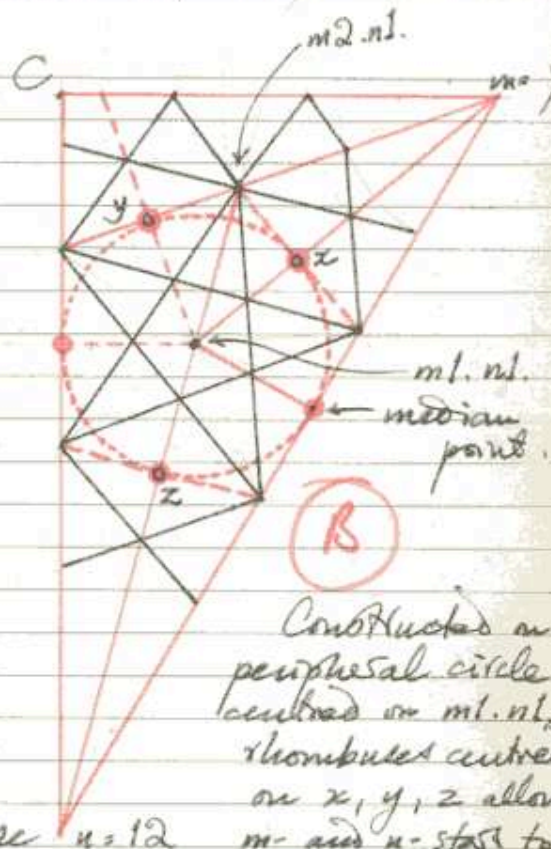 m2.n1.
C
m=
y
x
m1.n1.
median
point.
z
B
Constructed on
peripheral circle
centred on m1.n1,
rhombuses centre
on x, y, z allow
n=12 m- and n-stars to